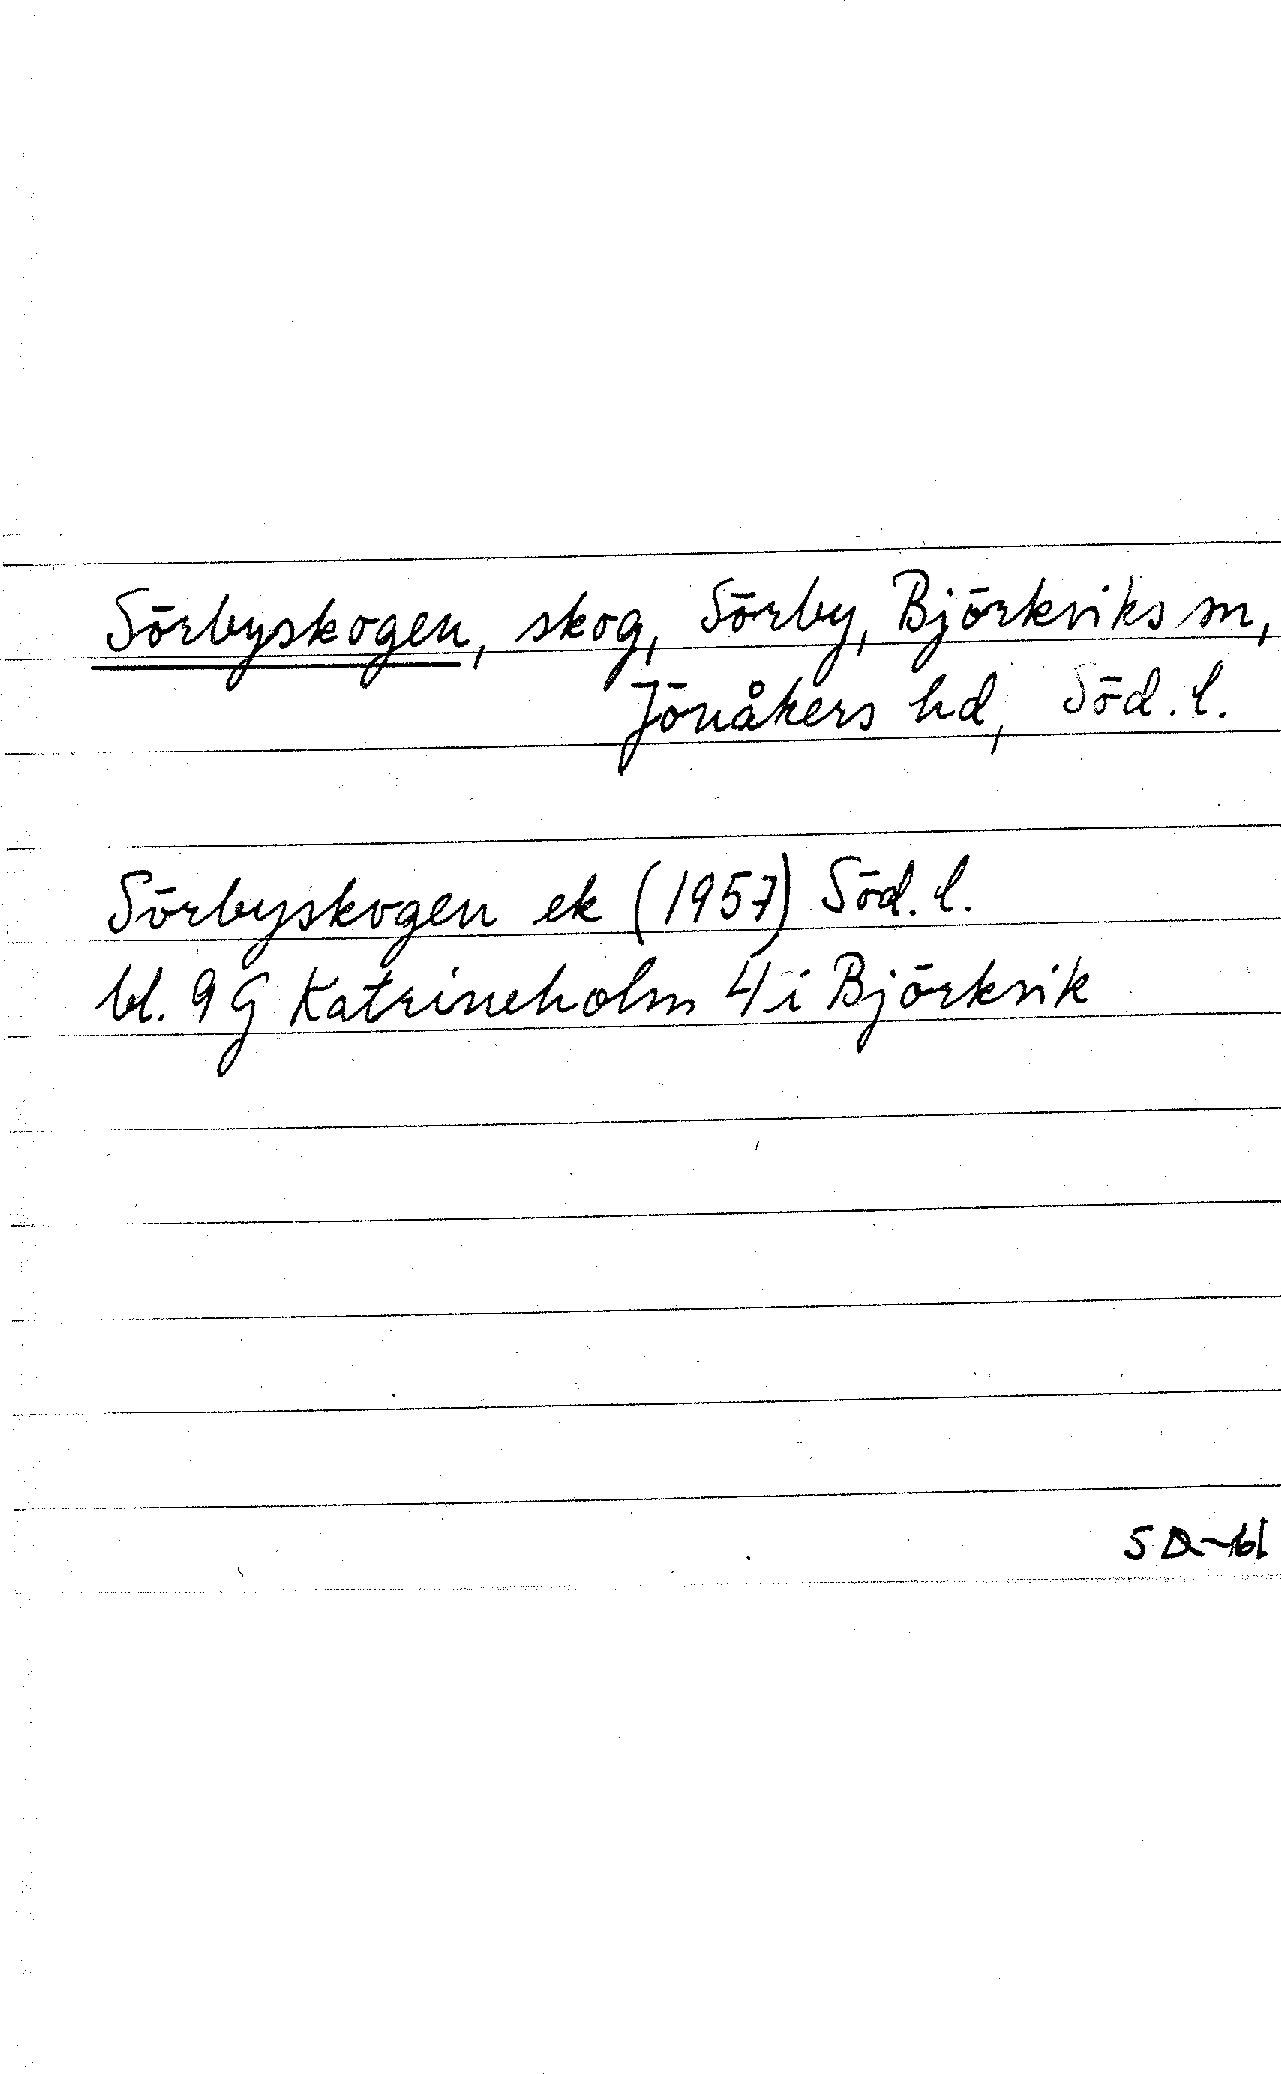 Sörbyskogen, skog, Sörby, Björkviks sn,
Jönåkers hd, Söd. l.
Sörbyskogen ek (1957) Söd. l.
bl. 9G Katrineholm 4i Björkvik